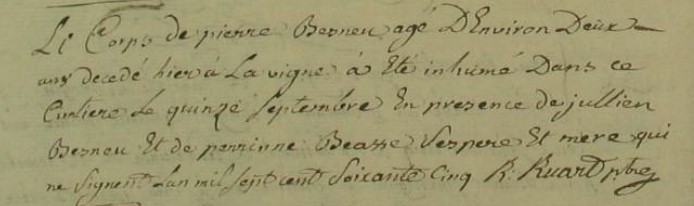 Le Corps de pierre Besneu agé D'Environ Deux
ans decedé hier à La vigne à Eté inhumé Dans ce
Cimtiere Le quinze septembre En presence de jullien
Besneu Et de perrinne Beasse Ses pere Et mere qui
ne signent Lan mil sept cent soixante cinq R: Ruard pbre